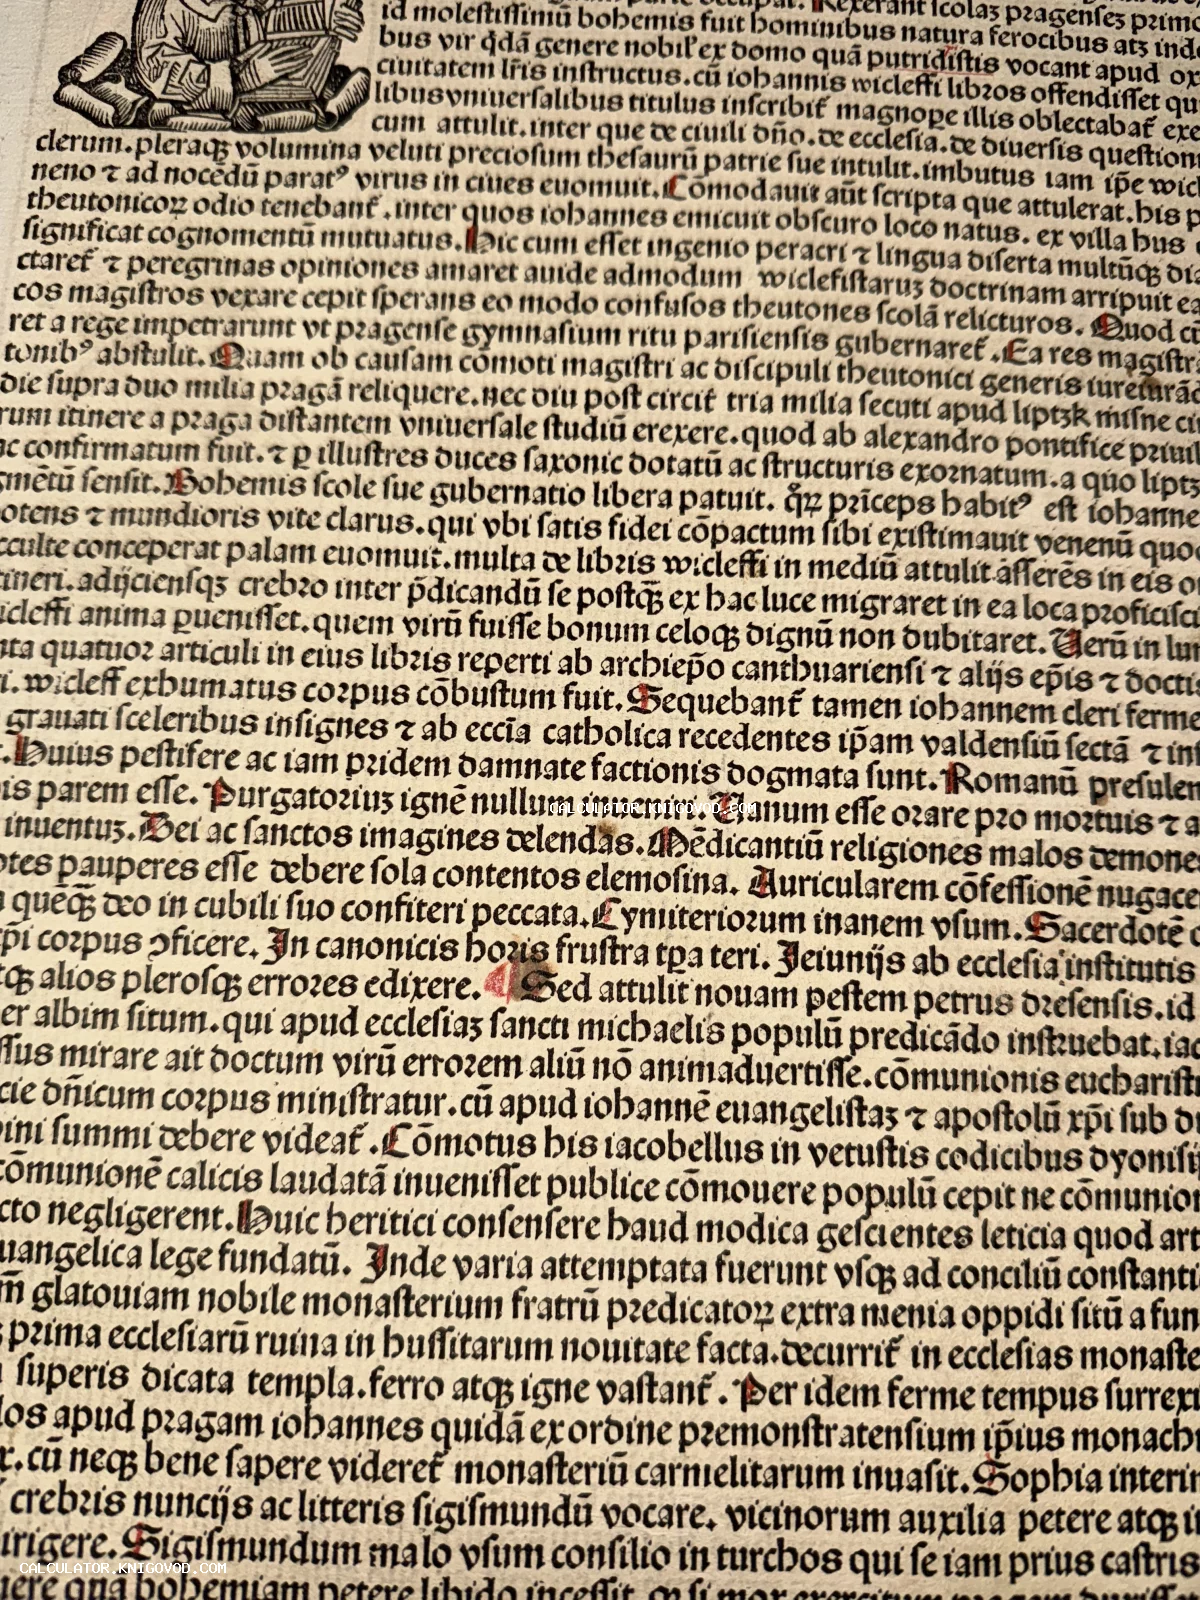 id molestissimū bohemis fuit hominibus natura ferocibus atꝫ
bus vir q̄dā genere nobil' ex domo quā putridistis vocant apud
ciuitatem lr̄is instructus.cū iohannis wicleffi libros offendisset
libus vniuersalibus titulus inscribit᷑ magnoꝑe illis oblectabat᷑
cum attulit.inter que de ciuili dn̄o.de ecclesia.de diuersis
clerum.pleraqꝫ volumina veluti preciosum thesaurū patrie sue intulit.imbutus iam ip̄e
neno ⁊ ad nocēdū paratꝰ virus in ciues euomuit.Cōmodauit aūt scripta que attulerat.his
theutonicoꝝ odio tenebant᷑.inter quos iohannes emicuit obscuro loco natus. ex villa hus
significat cognomentū mutuatus.Hic cum esset ingenio peracri ⁊ lingua diserta multūqꝫ
ctaret᷑ ⁊ peregrinas opiniones amaret auide admodum wiclefistaruꝫ doctrinam arripuit
cos magistros vexare cepit sperans eo modo confusos theutones scolā relicturos. Quod
ret a rege impetrarunt vt pragense gymnasium ritu parisiensis gubernaret᷑.Ea res
tonibꝰ abstulit.Quam ob causam cōmoti magistri ac discipuli theutonici generis
die supra duo milia pragā reliquere.nec diu post circit᷑ tria milia secuti apud liptzk misne
rum itinere a praga distantem vniuersale studiū erexere.quod ab alexandro pontifice
ac confirmatum fuit.⁊ ꝑ illustres duces saxonic dotatū ac structuris exornatum.a quo
sensit.Bohemis scole sue gubernatio libera patuit. q̄ꝝ prīceps habitꝰ est
⁊ mundioris vite clarus.qui vbi satis fidei cōpactum sibi existimauit venenū
conceperat palam euomuit.multa de libris wicleffi in mediū attulit.asserēs in eis
adijciensqꝫ crebro inter p̄dicandū se postqꝫ̄ ex hac luce migraret in ea loca
anima ꝑuenisset.quem virū fuisse bonum celoqꝫ dignū non dubitaret.Uerū in
quatuor articuli in eius libris reperti ab archiep̄o canthuariensi ⁊ alijs ep̄is ⁊
wicleff exhumatus corpus cōbustum fuit.Sequebant᷑ tamen iohannem cleri ferme
grauati sceleribus insignes ⁊ ab eccīa catholica recedentes ip̄am valdensiū sectā ⁊
Huius pestifere ac iam pridem damnate factionis dogmata sunt.Romanū
parem esse. Purgatoriuꝫ ignē nullum inueniri.Uanum esse orare pro mortuis ⁊
CALCULATOR.KNIGOVOD.COM
inuentuꝫ.Dei ac sanctos imagines delendas.Mēdicantiū religiones malos
pauperes esse debere sola contentos elemosina. Auricularem cōfessionē
quēqꝫ̄ deo in cubili suo confiteri peccata.Cymiteriorum inanem vsum.Sacerdotē
xp̄i corpus ꝯficere. In canonicis horis frustra tꝑa teri. Jeiunijs ab ecclesia institutis
alios plerosqꝫ errores edixere. Sed attulit nouam pestem petrus dresensis.id
er albim situm.qui apud ecclesiaꝫ sancti michaelis populū predicādo instruebat.
mirare ait doctum virū errorem aliū nō animaduertisse.cōmunionis
dn̄icum corpus ministratur.cū apud iohannē euangelistaꝫ ⁊ apostolū xp̄i sub
summi debere videat᷑.Cōmotus his iacobellus in vetustis codicibus
cōmunionē calicis laudatā inuenisset publice cōmouere populū cepit ne
negligerent.Huic heritici consensere haud modica gescientes leticia quod
lege fundatū. Inde varia attemptata fuerunt vsqꝫ ad conciliū
glatouiam nobile monasterium fratrū predicatoꝝ extra menia oppidi sitū a
prima ecclesiarū ruina in hussitarum nouitate facta.decurrit᷑ in ecclesias
superis dicata templa.ferro atqꝫ igne vastant᷑. Per idem ferme tempus
apud pragam iohannes quidā ex ordine premonstratensium ip̄ius
cū neqꝫ bene sapere videret᷑ monasteriū carmelitarum inuasit.Sophia
crebris nuncijs ac litteris sigismundū vocare. vicinorum auxilia petere atqꝫ
Sigismundum malo vsum consilio in turchos qui se iam prius
CALCULATOR.KNIGOVOD.COM
bohemiam petere libido incessit.